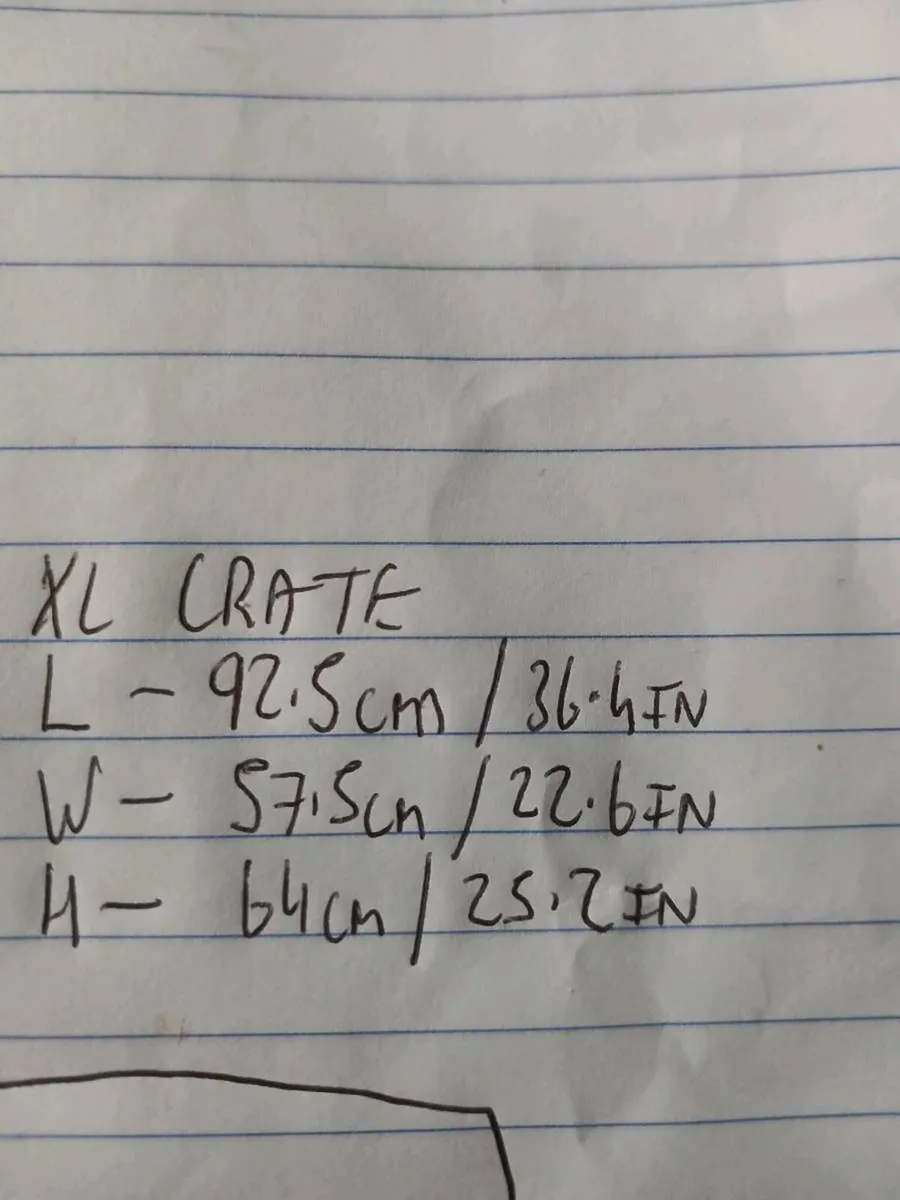 XL CRATE
L - 92.5cm / 36.4IN
W - 57.5cm / 22.6IN
H - 64cm / 25.2IN